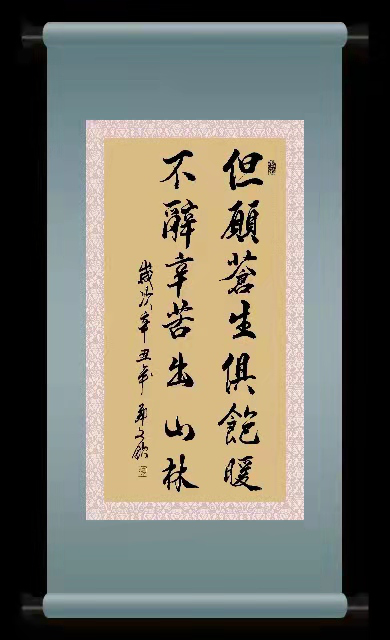 但願蒼生俱飽暖
不辭辛苦出山林
歲次辛丑年